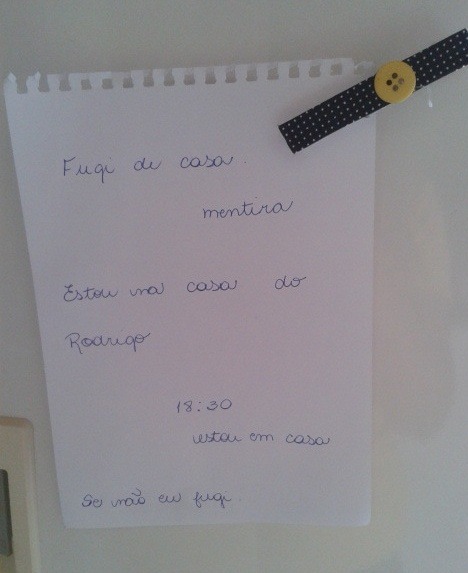 Fugi de casa.
mentira
Estou na casa do
Rodrigo
18:30
estou em casa
Se não eu fugi.